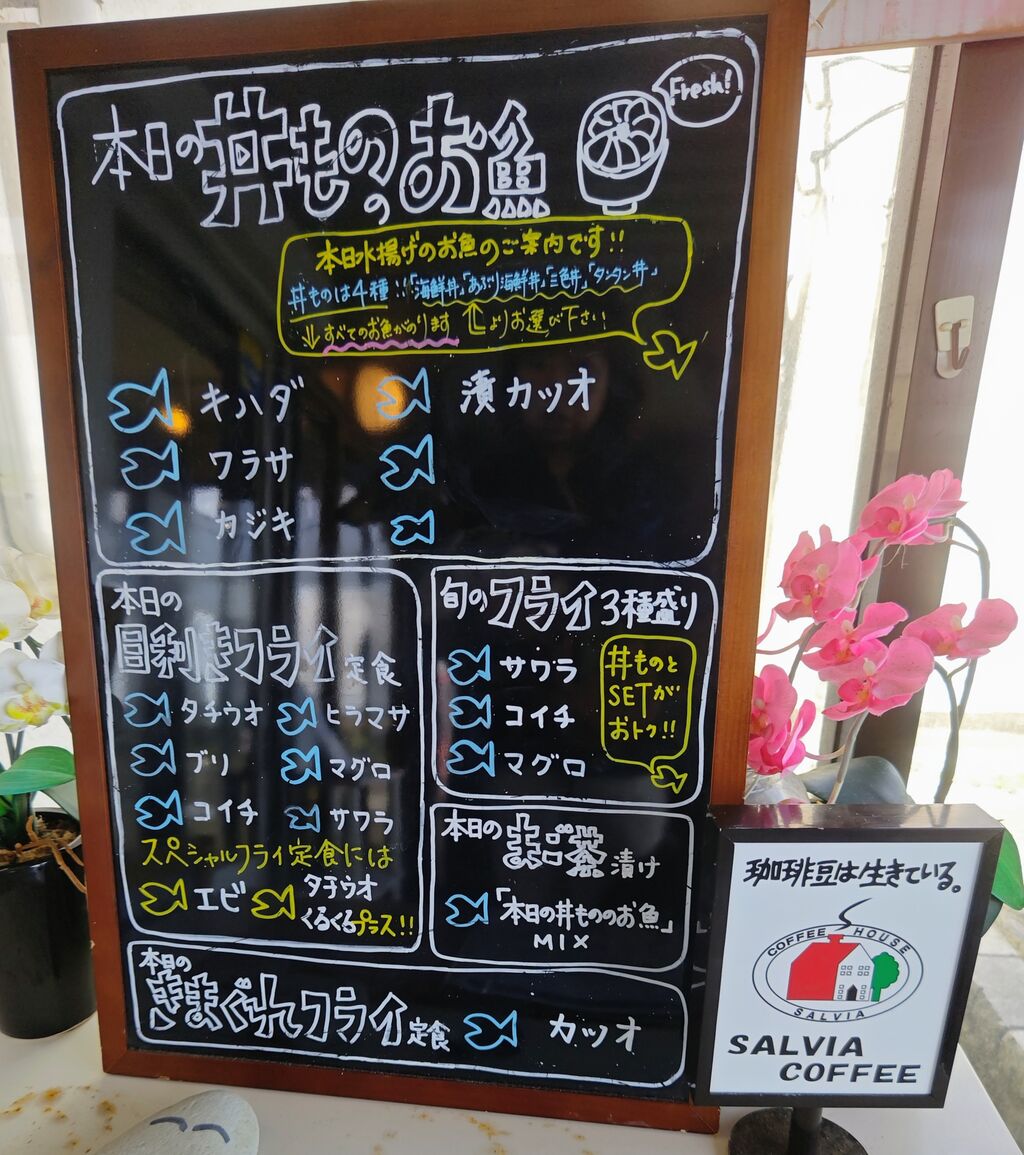 本日の丼もののお魚
Fresh!
本日水揚げのお魚のご案内です!!
丼ものは4種!!「海鮮丼」「あぶり海鮮丼」「三色丼」「タンタン丼」
↓すべてのお魚がのります よりお選び下さい
キハダ
漬カツオ
ワラサ
カジキ
本日の
目利きフライ定食
タチウオ
ヒラマサ
ブリ
マグロ
コイチ
サワラ
スペシャルフライ定食には
エビ
タチウオ
くるくるプラス!!
旬のフライ3種盛り
サワラ
コイチ
マグロ
丼ものと
SETが
おトク!!
本日の まご茶漬け
「本日の丼もののお魚」
MIX
本日の
きまぐれフライ定食
カツオ
珈琲豆は生きている。
COFFEE HOUSE
SALVIA
SALVIA
COFFEE